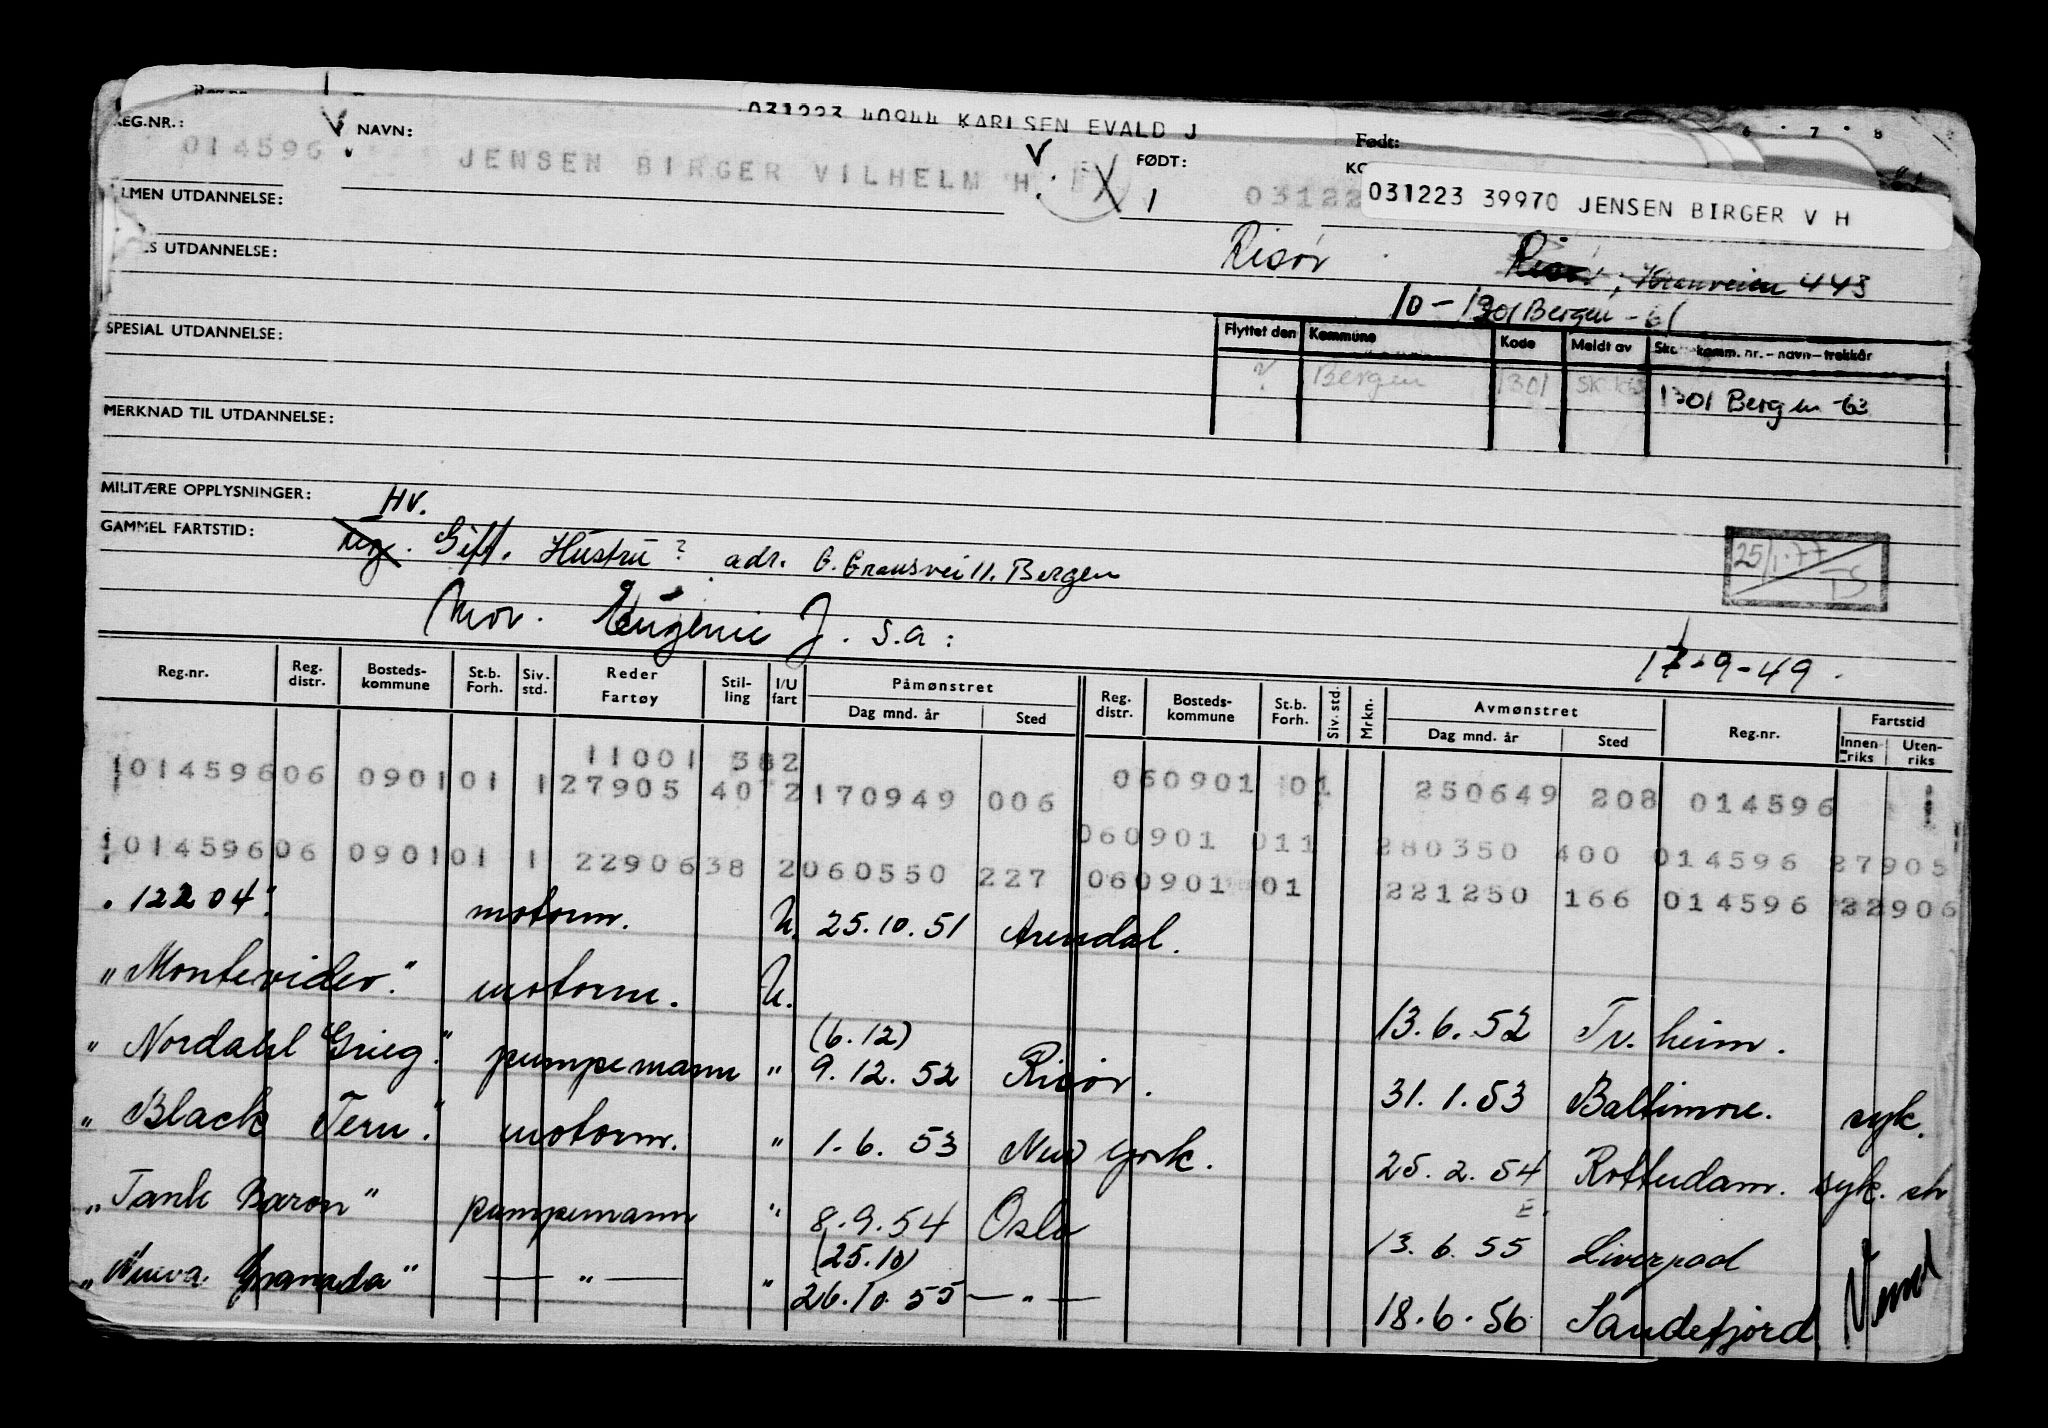 031223 40944 KARLSEN EVALD J
REG.NR.: NAVN: FØDT: Født:
6 · 7 · 8
014596 JENSEN BIRGER VILHELM H. 1 03122
031223 39970 JENSEN BIRGER V H
LMEN UTDANNELSE:
S UTDANNELSE:
Risør Risør, Kranveien 443
10 - 1301 Bergen - 61
SPESIAL UTDANNELSE:
Flyttet den Kommune Kode Meldt av komm. nr. – navn – trekkår
? Bergen 1301 1301 Bergen - 63
MERKNAD TIL UTDANNELSE:
MILITÆRE OPPLYSNINGER: HV.
GAMMEL FARTSTID:
Ug. Gift. Hustru? adr. Bergen
25/1.77
TS
Mor. Eugenie J. s.a:
17-9-49.
Reg.nr. Reg. distr. Bosteds-kommune St.b. Forh. Siv. std. Reder Fartøy Stil-ling I/U fart Påmønstret Dag mnd. år Sted Reg. distr. Bosteds-kommune St.b. Forh. Siv. std. Mrkn. Avmønstret Dag mnd. år Sted Reg.nr. Fartstid Innen-riks Uten-riks
11001 382
01459606 090101 1 27905 40 2 170949 006 060901 01 250649 208 014596
060901 011 280350 400 014596 27905
01459606 090101 1 2290638 2060550 227 060901 01 221250 166 014596 22906
" 12204" motorm. U. 25.10.51 Arendal.
"Montevideo." motorm. U. 13.6.52 Tr. heim.
(6.12)
"Nordahl Grieg." pumpemann " 9.12.52 Risør. 31.1.53 Baltimore. syk.
"Black Tern." motorm. " 1.6.53 New York. 25.2.54 Rotterdam. syk.
E.
"Tank Baron" pumpemann " 8.9.54 Oslo 13.6.55 Liverpool
(25.10)
"Nueva Granada" — " — " 26.10.55 — " — 18.6.56 Sandefjord